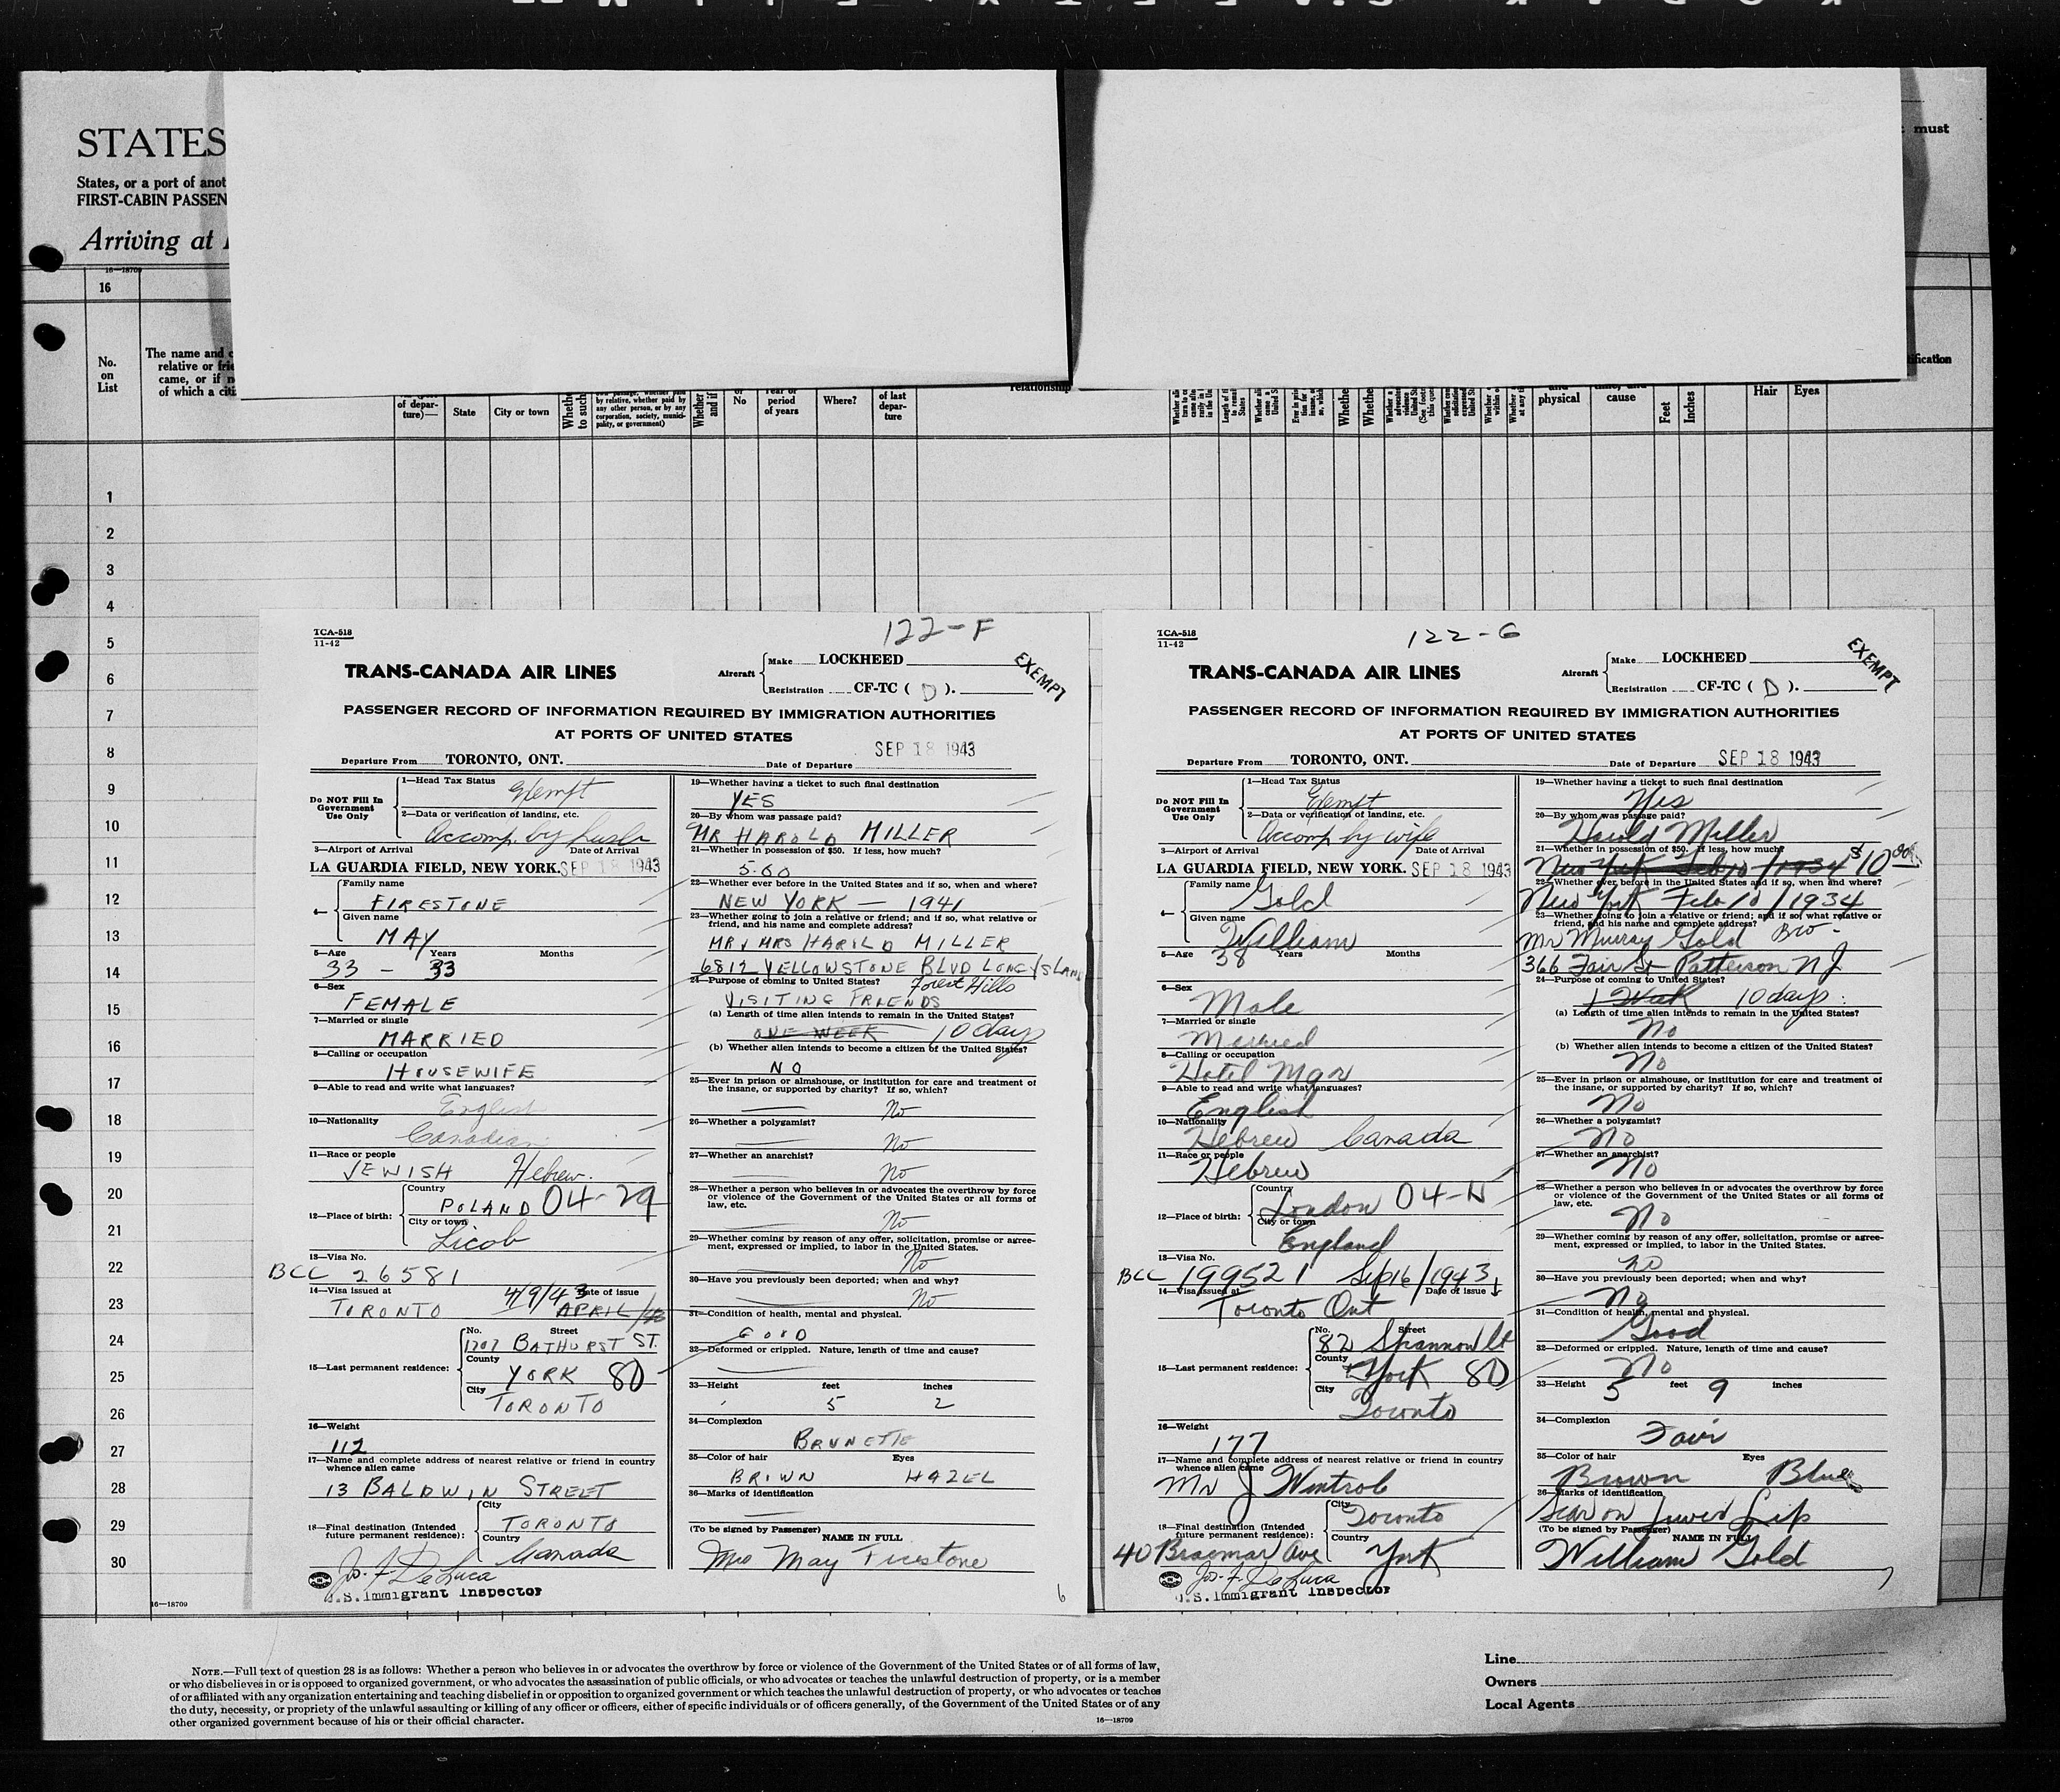 STATES
States, or a port of anot
FIRST-CABIN PASSEN
Arriving at
must
16—18709
16
No.
on
List
The name and c
relative or frie
came, or if n
of which a citi
of depar-
ture)—
State
City or town
Whethe
to such
by relative, whether paid by
any other person, or by any
corporation, society, munici-
pality, or government)
Whether
and if
or
No
Year or
period
of years
Where?
of last
depar-
ture
relationship
Whethe
Whethe
and
physical
time, and
cause
Feet
Inches
Hair
Eyes
tification
1
2
3
4
5
6
7
8
9
10
11
12
13
14
15
16
17
18
19
20
21
22
23
24
25
26
27
28
29
30
16—18709
TCA-518
11-42
122-F
TRANS-CANADA AIR LINES
Aircraft
Make LOCKHEED
Registration CF-TC ( D ).
EXEMPT
PASSENGER RECORD OF INFORMATION REQUIRED BY IMMIGRATION AUTHORITIES
AT PORTS OF UNITED STATES
Departure From TORONTO, ONT.
Date of Departure SEP 18 1943
Do NOT Fill In
Government
Use Only
1—Head Tax Status
Exempt
2—Data or verification of landing, etc.
Accomp. by husb
3—Airport of Arrival Date of Arrival
LA GUARDIA FIELD, NEW YORK. SEP 18 1943
4—
Family name
FIRESTONE
Given name
MAY
5—Age Years Months
33 - 33
6—Sex
FEMALE
7—Married or single
MARRIED
8—Calling or occupation
HOUSEWIFE
9—Able to read and write what languages?
English
10—Nationality
Canadian
11—Race or people
JEWISH Hebrew.
12—Place of birth:
Country
POLAND 04-29
City or town
Licob
13—Visa No.
BCC 26581
14—Visa issued at Date of issue
TORONTO 4/9/43 APRIL
15—Last permanent residence:
No. Street
1707 BATHURST ST.
County
YORK 80
City
TORONTO
16—Weight
112
17—Name and complete address of nearest relative or friend in country
whence alien came
13 BALDWIN STREET
18—Final destination (Intended
future permanent residence):
City
TORONTO
Country
Canada
Jos. F. DeLuca
U.S. Immigrant Inspector
19—Whether having a ticket to such final destination
YES
20—By whom was passage paid?
MR HAROLD MILLER
21—Whether in possession of $50. If less, how much?
5.00
22—Whether ever before in the United States and if so, when and where?
NEW YORK — 1941
23—Whether going to join a relative or friend; and if so, what relative or
friend, and his name and complete address?
MR & MRS HAROLD MILLER
6812 YELLOWSTONE BLVD LONG ISLAND
24—Purpose of coming to United States?
Forest Hills
VISITING FRIENDS
(a) Length of time alien intends to remain in the United States?
ONE WEEK 10 days
(b) Whether alien intends to become a citizen of the United States?
NO
25—Ever in prison or almshouse, or institution for care and treatment of
the insane, or supported by charity? If so, which?
No
26—Whether a polygamist?
No
27—Whether an anarchist?
No
28—Whether a person who believes in or advocates the overthrow by force
or violence of the Government of the United States or all forms of
law, etc.
No
29—Whether coming by reason of any offer, solicitation, promise or agree-
ment, expressed or implied, to labor in the United States.
No
30—Have you previously been deported; when and why?
No
31—Condition of health, mental and physical.
GOOD
32—Deformed or crippled. Nature, length of time and cause?
33—Height feet inches
5 2
34—Complexion
BRUNETTE
35—Color of hair Eyes
BROWN HAZEL
36—Marks of identification
(To be signed by Passenger) NAME IN FULL
Mrs May Firestone
6
TCA-518
11-42
122-G
TRANS-CANADA AIR LINES
Aircraft
Make LOCKHEED
Registration CF-TC ( D ).
EXEMPT
PASSENGER RECORD OF INFORMATION REQUIRED BY IMMIGRATION AUTHORITIES
AT PORTS OF UNITED STATES
Departure From TORONTO, ONT.
Date of Departure SEP 18 1943
Do NOT Fill In
Government
Use Only
1—Head Tax Status
Exempt
2—Data or verification of landing, etc.
Accomp by wife
3—Airport of Arrival Date of Arrival
LA GUARDIA FIELD, NEW YORK. SEP 18 1943
4—
Family name
Gold
Given name
William
5—Age Years Months
38
6—Sex
Male
7—Married or single
Married
8—Calling or occupation
Hotel Mgr
9—Able to read and write what languages?
English
10—Nationality
Hebrew Canada
11—Race or people
Hebrew
12—Place of birth:
Country
London 04-N
City or town
England
13—Visa No.
BCC 199521 Sep 16/1943
14—Visa issued at Date of issue
Toronto Ont
15—Last permanent residence:
No. Street
82 Shannon St
County
York 80
City
Toronto
16—Weight
177
17—Name and complete address of nearest relative or friend in country
whence alien came
Mr J Wintrob
18—Final destination (Intended
future permanent residence):
City
Toronto
Country
40 Braemar Ave York
Jos. F. DeLuca
U.S. Immigrant Inspector
19—Whether having a ticket to such final destination
Yes
20—By whom was passage paid?
Harold Miller
21—Whether in possession of $50. If less, how much?
New York Feb 10 / 1934 $10.00
22—Whether ever before in the United States and if so, when and where?
New York Feb 10 / 1934
23—Whether going to join a relative or friend; and if so, what relative or
friend, and his name and complete address?
Mr Murray Gold Bro-
366 Fair St Patterson NJ
24—Purpose of coming to United States?
1 Week 10 days
(a) Length of time alien intends to remain in the United States?
No
(b) Whether alien intends to become a citizen of the United States?
No
25—Ever in prison or almshouse, or institution for care and treatment of
the insane, or supported by charity? If so, which?
No
26—Whether a polygamist?
No
27—Whether an anarchist?
No
28—Whether a person who believes in or advocates the overthrow by force
or violence of the Government of the United States or all forms of
law, etc.
No
29—Whether coming by reason of any offer, solicitation, promise or agree-
ment, expressed or implied, to labor in the United States.
no
30—Have you previously been deported; when and why?
No
31—Condition of health, mental and physical.
Good
32—Deformed or crippled. Nature, length of time and cause?
No
33—Height feet inches
5 9
34—Complexion
Fair
35—Color of hair Eyes
Brown Blue
36—Marks of identification
Scar on Lower Lip
(To be signed by Passenger) NAME IN FULL
William Gold
7
NOTE.—Full text of question 28 is as follows: Whether a person who believes in or advocates the overthrow by force or violence of the Government of the United States or of all forms of law,
or who disbelieves in or is opposed to organized government, or who advocates the assassination of public officials, or who advocates or teaches the unlawful destruction of property, or is a member
of or affiliated with any organization entertaining and teaching disbelief in or opposition to organized government or which teaches the unlawful destruction of property, or who advocates or teaches
the duty, necessity, or propriety of the unlawful assaulting or killing of any officer or officers, either of specific individuals or of officers generally, of the Government of the United States or of any
other organized government because of his or their official character.
16—18709
Line
Owners
Local Agents